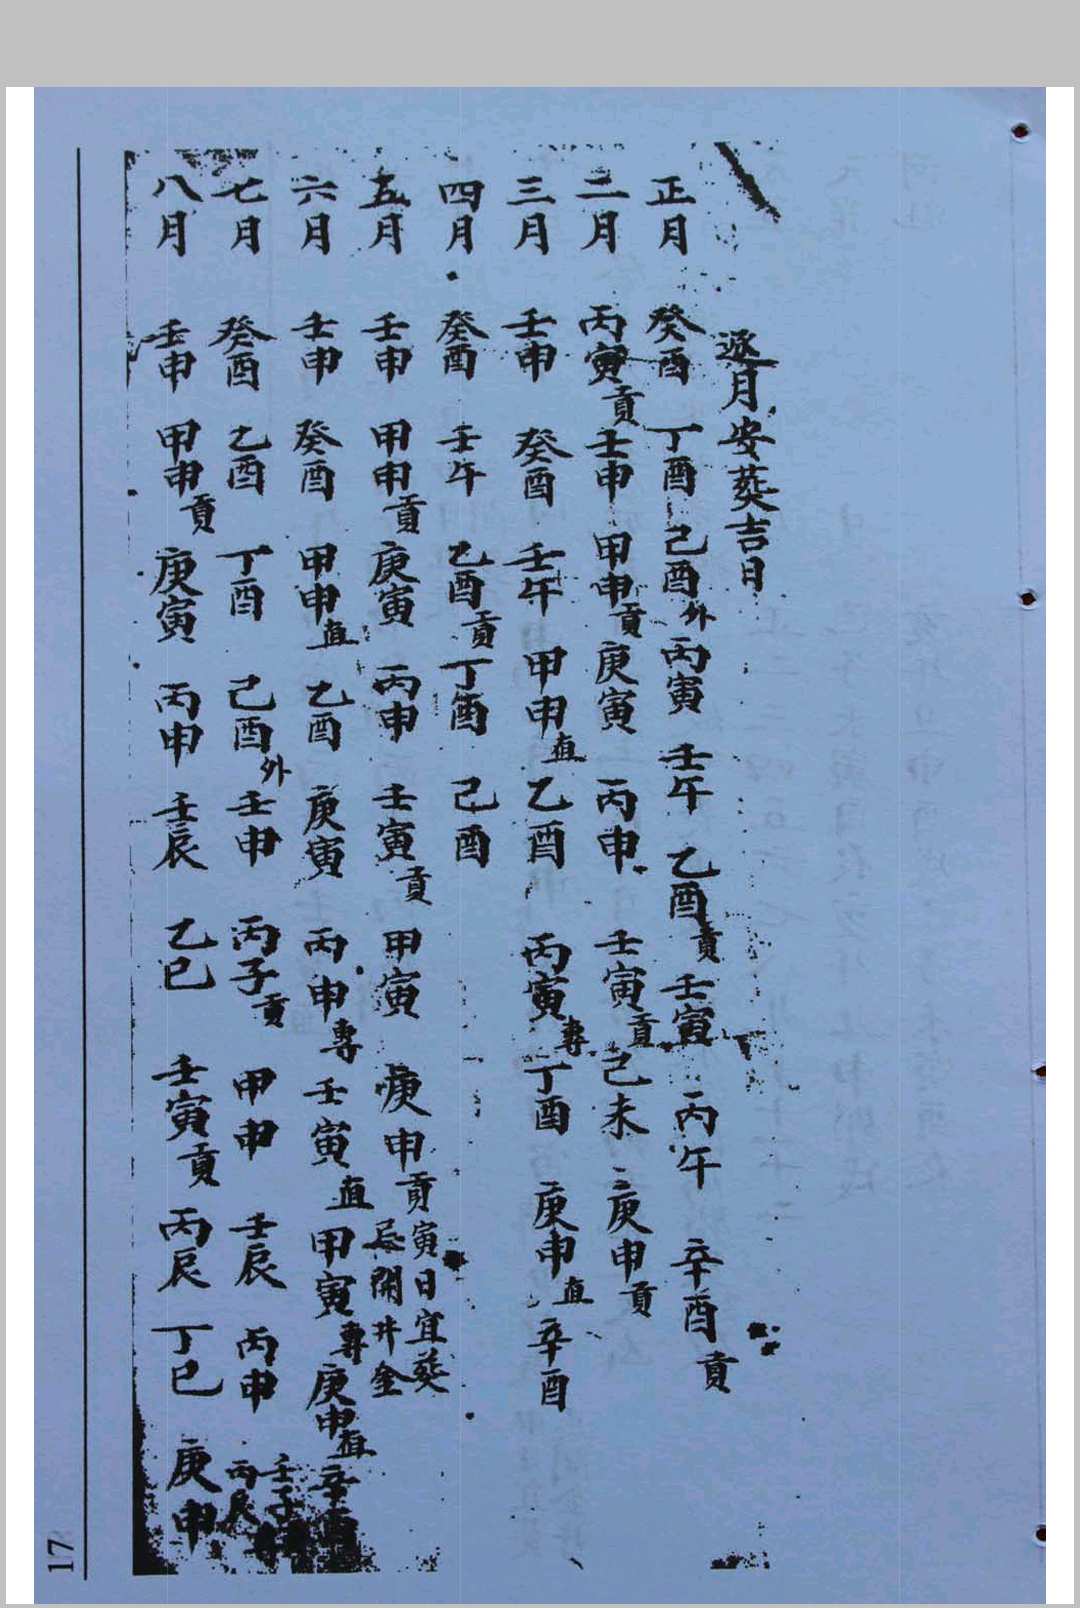 逐月安葬吉日
正月 癸酉 丁酉 己酉外 丙寅 壬午 乙酉貢 壬寅 丙午 辛酉貢
二月 丙寅貢 壬申 甲申貢 庚寅 丙申 壬寅貢 己未 庚申貢
三月 壬申 癸酉 壬午 甲申直 乙酉 丙寅專 丁酉 庚申直 辛酉
四月 癸酉 壬午 乙酉貢 丁酉 己酉
五月 壬申 甲申貢 庚寅 丙申 壬寅貢 甲寅 庚申貢 寅日宜葵忌開井金
六月 壬申 癸酉 甲申直 乙酉 庚寅 丙申專 壬寅直 甲寅專 庚申直 辛酉
七月 癸酉 乙酉 丁酉 己酉外 壬申 丙子貢 甲申 壬辰 丙申 壬子 丙辰
八月 壬申 甲申貢 庚寅 丙申 壬辰 乙巳 壬寅貢 丙辰 丁巳 庚申
17